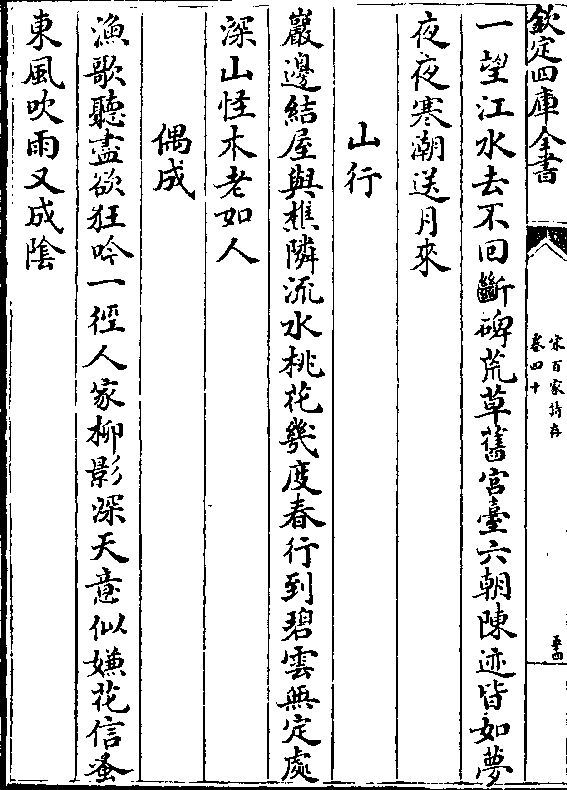 欽定四庫全書
宋百家詩存
卷四十
一望江水去不回斷碑荒草舊宮臺六朝陳迹皆如夢
夜夜寒潮送月來
山行
巖邊結屋與樵隣流水桃花幾度春行到碧雲無定處
深山怪木老如人
偶成
漁歌聽盡欲狂吟一徑人家柳影深天意似嫌花信蚤
東風吹雨又成陰